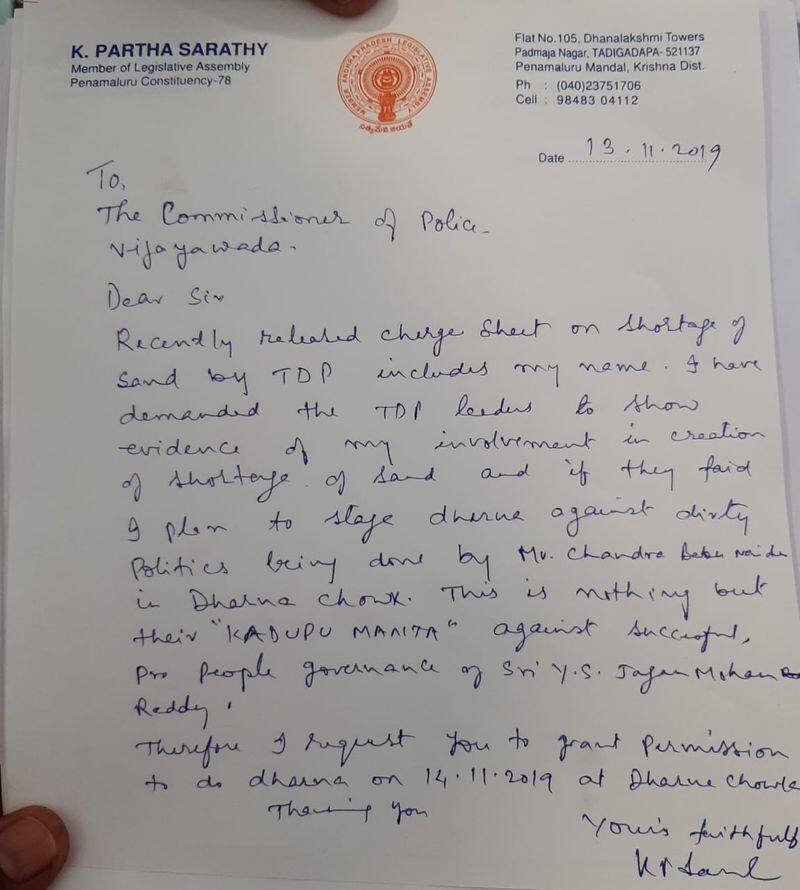 K. PARTHA SARATHY
Member of Legislative Assembly
Penamaluru Constituency-78
MEMBER ANDHRA PRADESH LEGISLATIVE ASSEMBLY
సత్యమేవ జయతే
Flat No.105, Dhanalakshmi Towers
Padmaja Nagar, TADIGADAPA- 521137
Penamaluru Mandal, Krishna Dist.
Ph : (040)23751706
Cell : 98483 04112
Date 13.11.2019
To,
The Commissioner of Police
Vijayawada.
Dear Sir
Recently released charge Sheet on shortage of
Sand by TDP includes my name. I have
demanded the TDP leaders to show
evidence of my involvement in creation
of shortage of sand and if they faid
I plan to stage dharna against dirty
Politics being done by Mr. Chandra Babu Naidu
in Dharna Chowk. This is nothing but
their "KADUPU MANTA" against successful,
pro people governance of Sri Y.S. Jagan Mohan
Reddy.
Therefore I request you to grant Permission
to do dharna on 14.11.2019 at Dharna Chowk
Thanking you
Yours faithfully